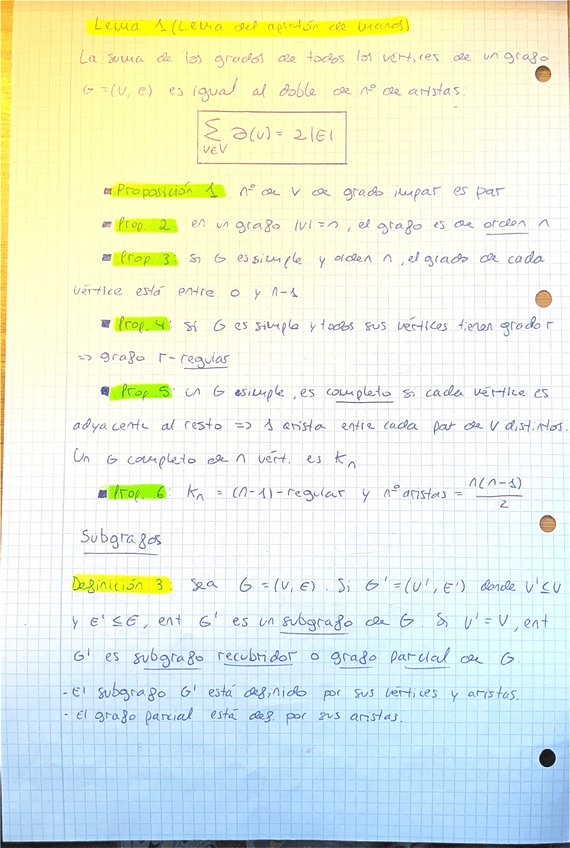 Lema 1 (Lema del apretón de manos).
La suma de los grados de todos los vértices de un grafo
G = (V, E) es igual al doble de nº de aristas:
∑ ∂(v) = 2|E|
v∈V
Proposición 1 nº de V de grado impar es par
Prop. 2: en un grafo |V| = n, el grafo es de orden n
Prop 3: Si G es simple y orden n, el grado de cada
vértice está entre 0 y n-1
Prop. 4: si G es simple y todos sus vértices tienen grado r
=> grafo r-regular
Prop. 5: un G esimple, es completo si cada vértice es
adyacente al resto => 1 arista entre cada par de V distintos.
Un G completo de n vért. es Kn
Prop. 6: Kn = (n-1)-regular y nº aristas = n(n-1)/2
Subgrafos
Definición 3. Sea G = (V, E). Si G' = (V', E') donde V' ⊆ V
y E' ⊆ E, ent G' es un subgrafo de G. Si V' = V, ent
G' es subgrafo recubridor o grafo parcial de G.
- El subgrafo G' está definido por sus vértices y aristas.
- El grafo parcial está def. por sus aristas.